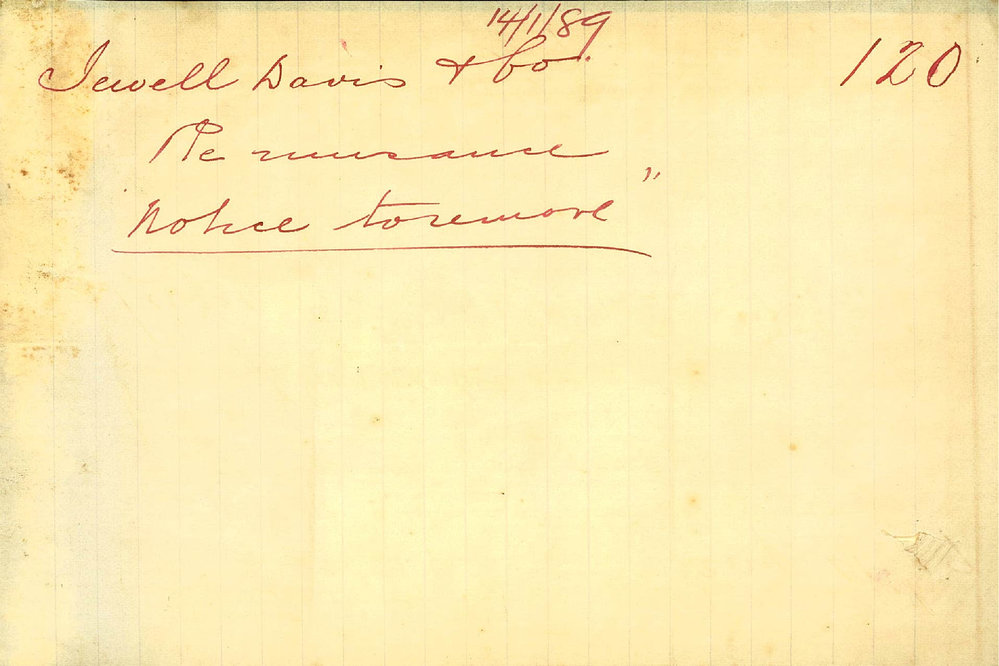 14/1/89
Jewell Davis & Co. 120
Re nuisance
Notice to remove "